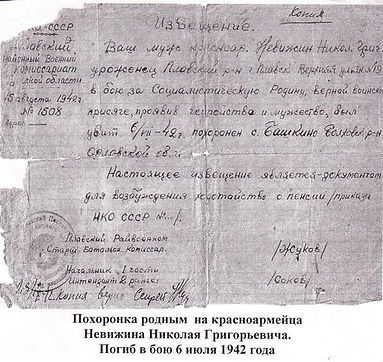 Копия
НКО СССР
Плавский
Районный Военный
Комиссариат
Тульской области
15 августа 1942г.
№ 1508
Извещение.
Ваш муж красноар. Невижин Никол. Григ.
уроженец Плавский р-н г. Плавск
в бою за Социалистическую Родину, верной воинской
присяге, проявив геройства и мужество, был
убит 6/VII-42г. похоронен с. Башкино Болховск р-н
Орловской обл.
Настоящее извещение является документом
для возбуждения ходатайство о пенсии /приказ
НКО СССР №
Плавский Райвоенком
Старш. Батальон комиссар.
/Жуков/
Начальник I части
Интендант 2 ранга
/Соков/
Копия верна
Похоронка родным на красноармейца
Невижина Николая Григорьевича.
Погиб в бою 6 июля 1942 года